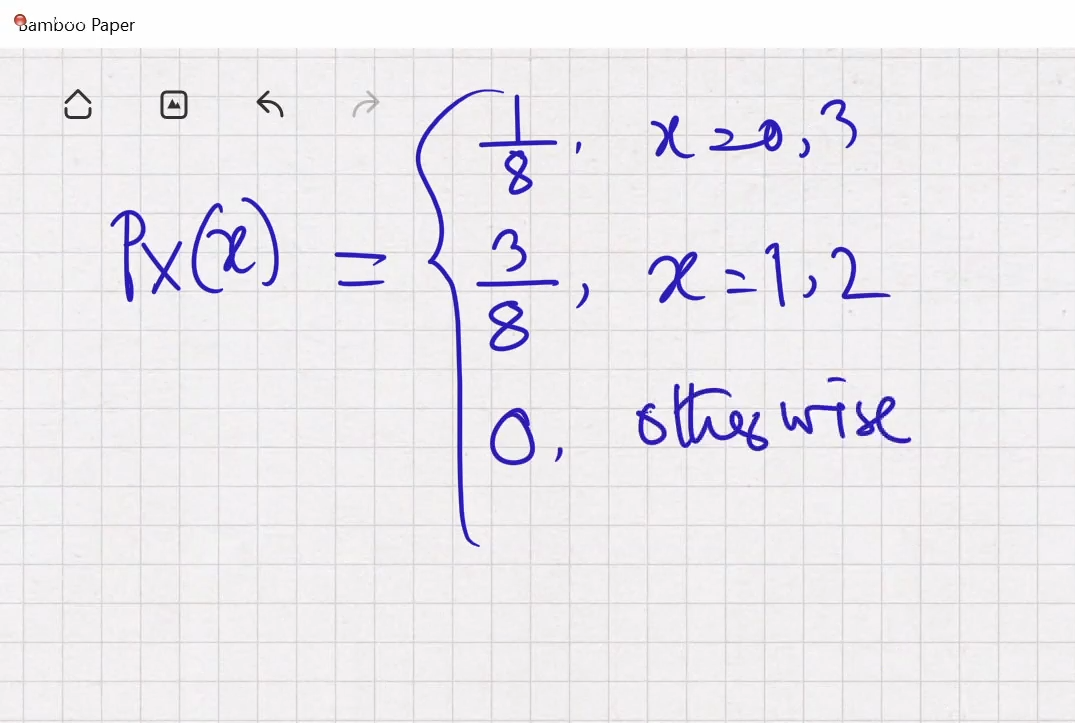 Bamboo Paper
1/8, x=0,3
Px(x) = { 3/8, x=1,2
0, otherwise